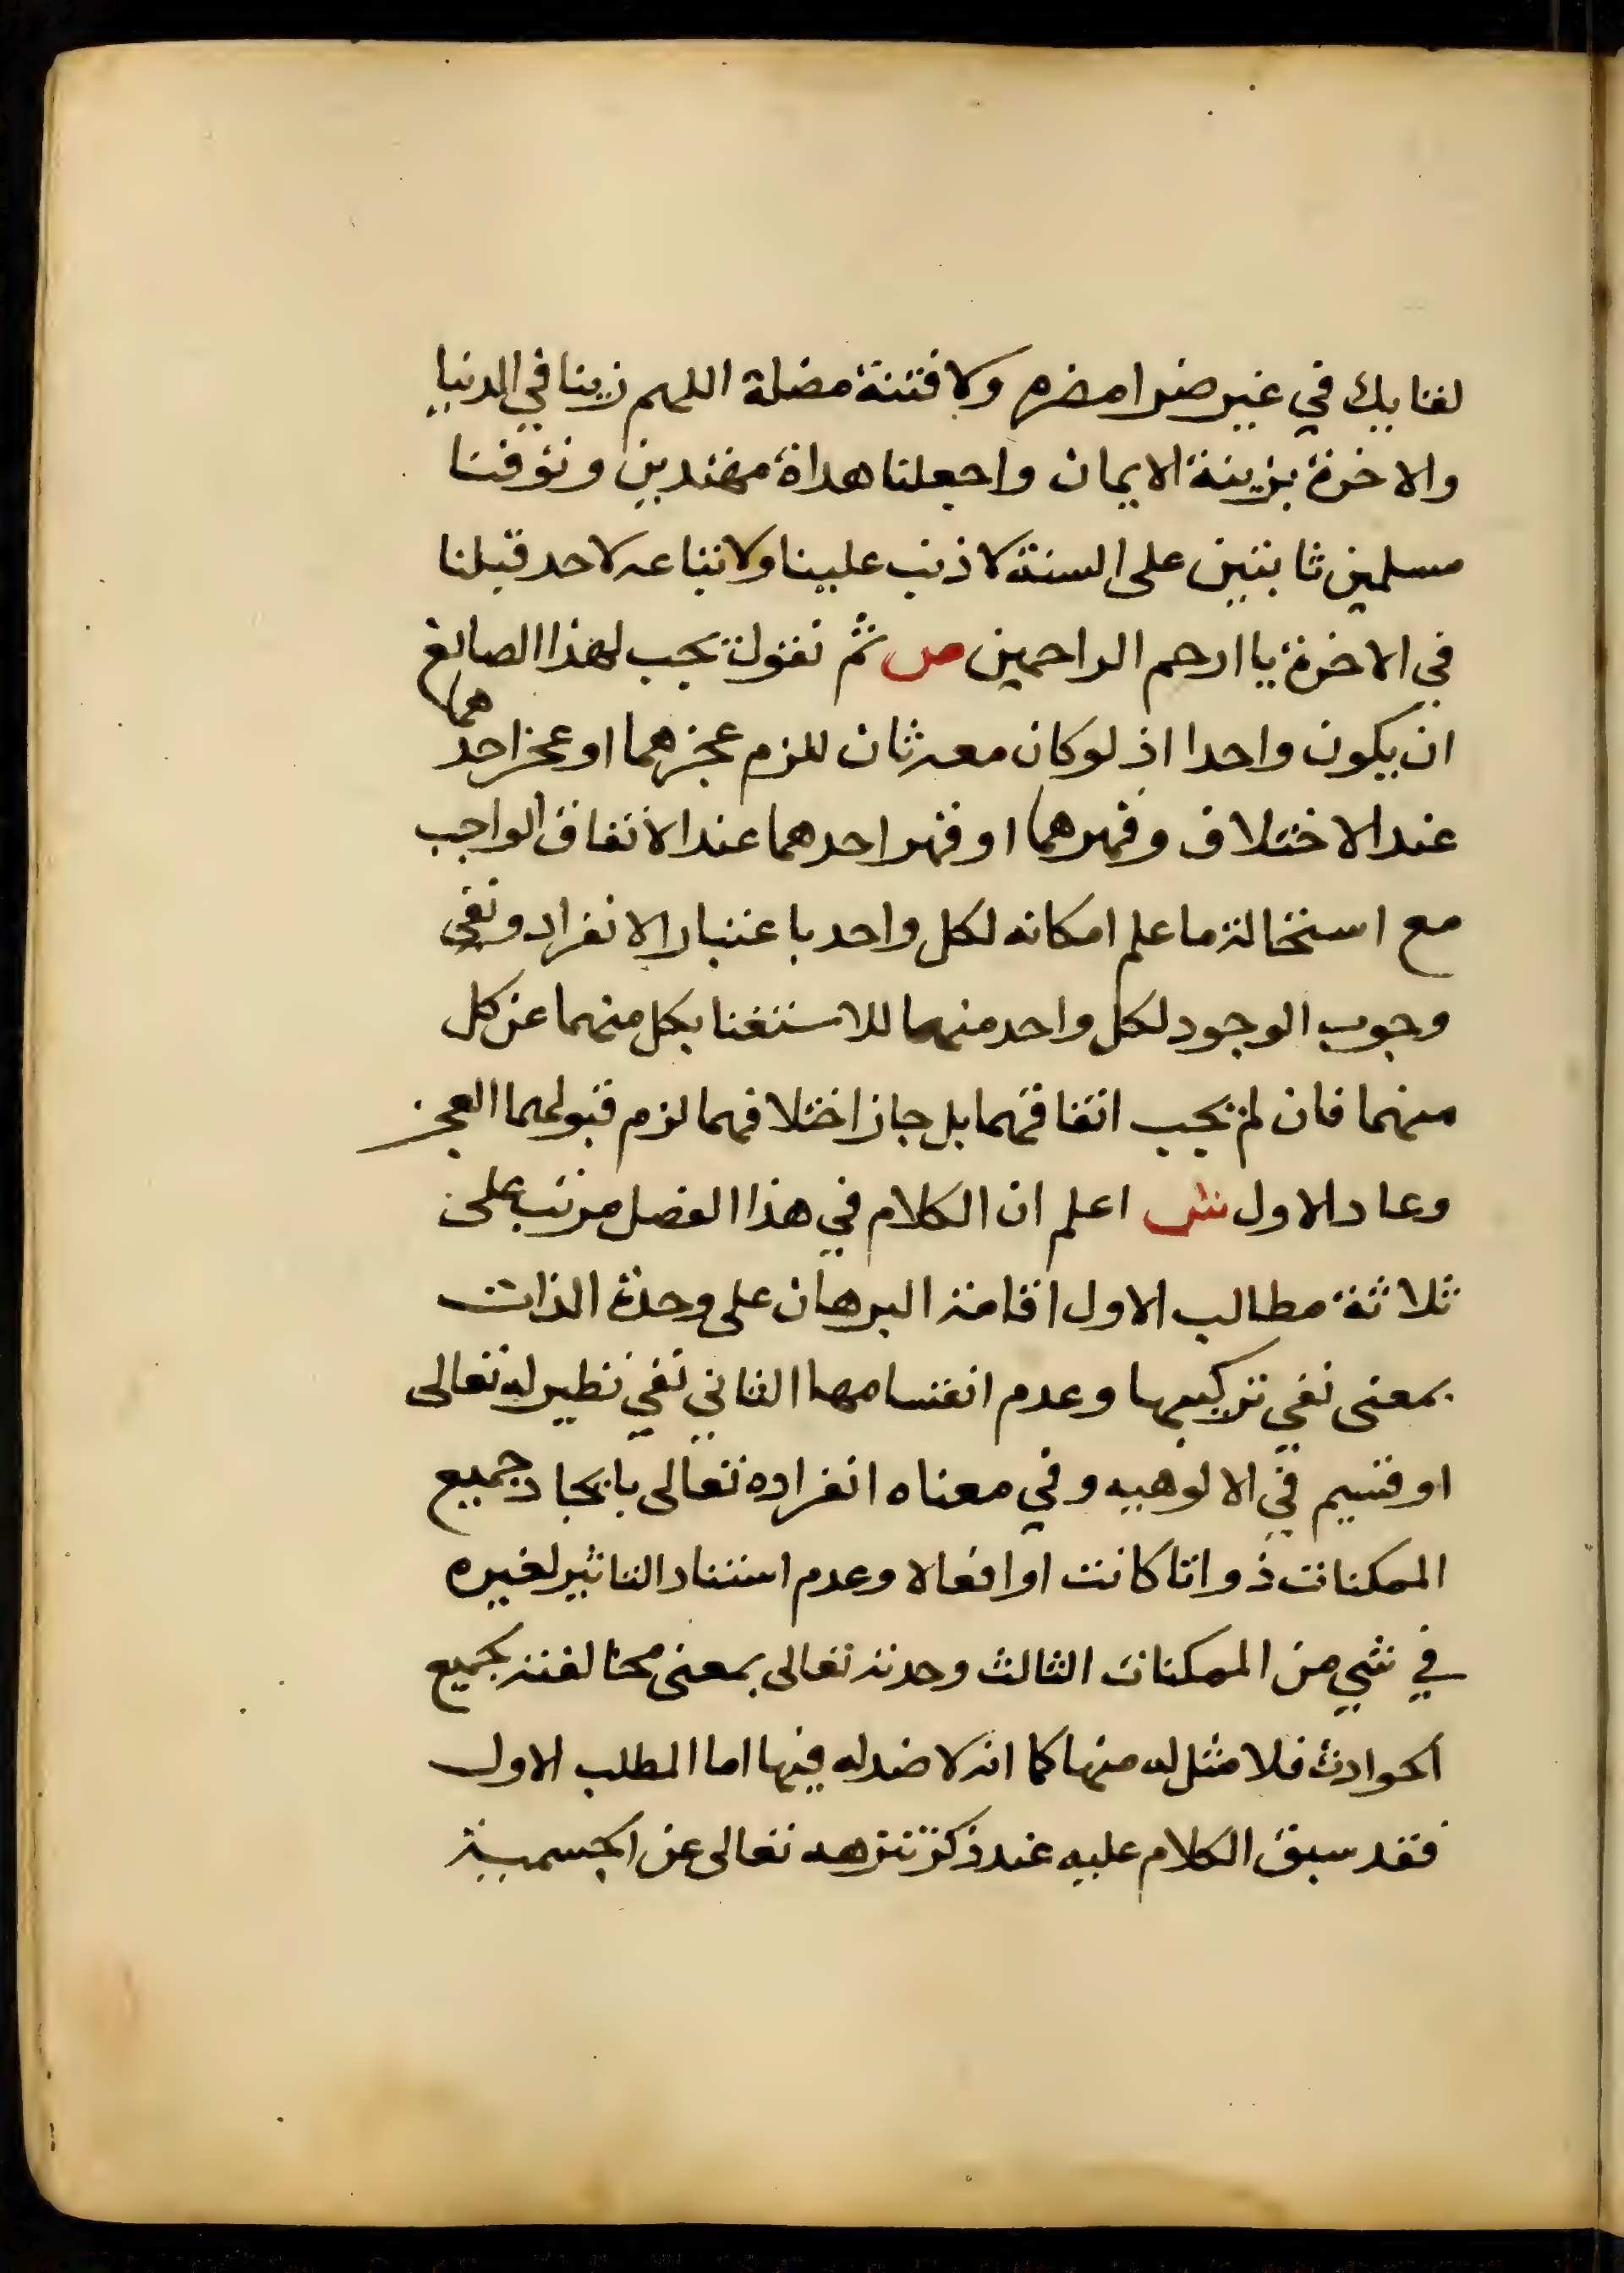 لقايك في غير ضرا مضره ولا فتنة مضلة اللهم زينا في الدنيا
والاخرة بزينة الايمان واجعلنا هداة مهتدين وتوفنا
مسلمين ثابتين على السنة لا ذنب علينا ولا تباعه لاحد قبلنا
في الاخرة يا ارحم الراحمين ص ثم نقول يجب لهذا الصانع
ان يكون واحدا اذ لو كان معه ثان للزم عجزهما او عجز احدهما
عند الاختلاف وقهرهما او قهر احدهما عند الاتفاق الواجب
مع استحالة ما علم امكانه لكل واحد باعتبار الانفراد ونفي
وجوب الوجود لكل واحد منهما للاستغنا بكل منهما عن كل
منهما فان لم يجب اتفاقهما بل جاز اختلافهما لزم قبولهما العجز
وعاد الاول ش اعلم ان الكلام في هذا الفصل مرتب على
ثلاثة مطالب الاول اقامة البرهان على وحدة الذات
بمعنى نفي تركيبها وعدم انقسامها الثاني نفي نظير له تعالى
او قسيم في الالوهيه وفي معناه انفراده تعالى بايجاد جميع
الممكنات ذواتا كانت او افعالا وعدم استناد التاثير لغيره
في شي من الممكنات الثالث وحدته تعالى بمعنى مخالفته لجميع
الحوادث فلا مثل له منها كما انه لا ضد له فيها اما المطلب الاول
فقد سبق الكلام عليه عند ذكر تنزهه تعالى عن الجسمية